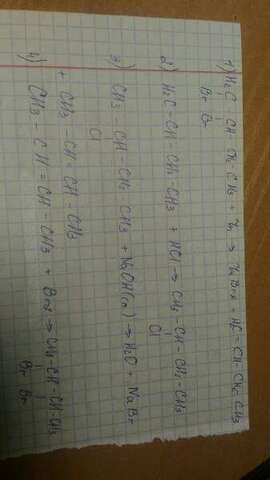 1) H2C - CH - CH2 - CH3 + Zn → ZnBr2 + H2C - CH - CH2 - CH3
Br Br
2) H2C - CH - CH2 - CH3 + HCl → CH3 - CH - CH2 - CH3
Cl
3) CH3 - CH - CH2 - CH3 + NaOH(сп) → H2O + NaBr
Cl
+ CH3 - CH = CH - CH3
4) CH3 - CH = CH - CH3 + Br2 → CH3 - CH - CH - CH3
Br Br